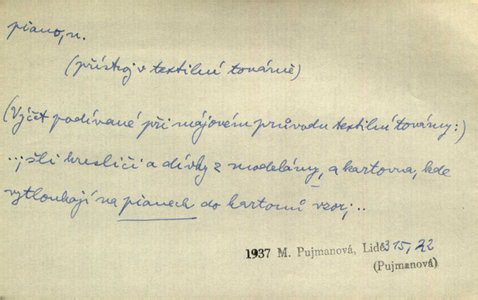 piano, n.
(přístroj v textilní továrně)
(Výčet podívané při májovém průvodu textilní továrny:)
.., šli kresliči a dívky z modelárny, a kartovna, kde
vytloukají na pianech do kartonů vzor, ..
1937 M. Pujmanová, Lidé 315, 22
(Pujmanová)